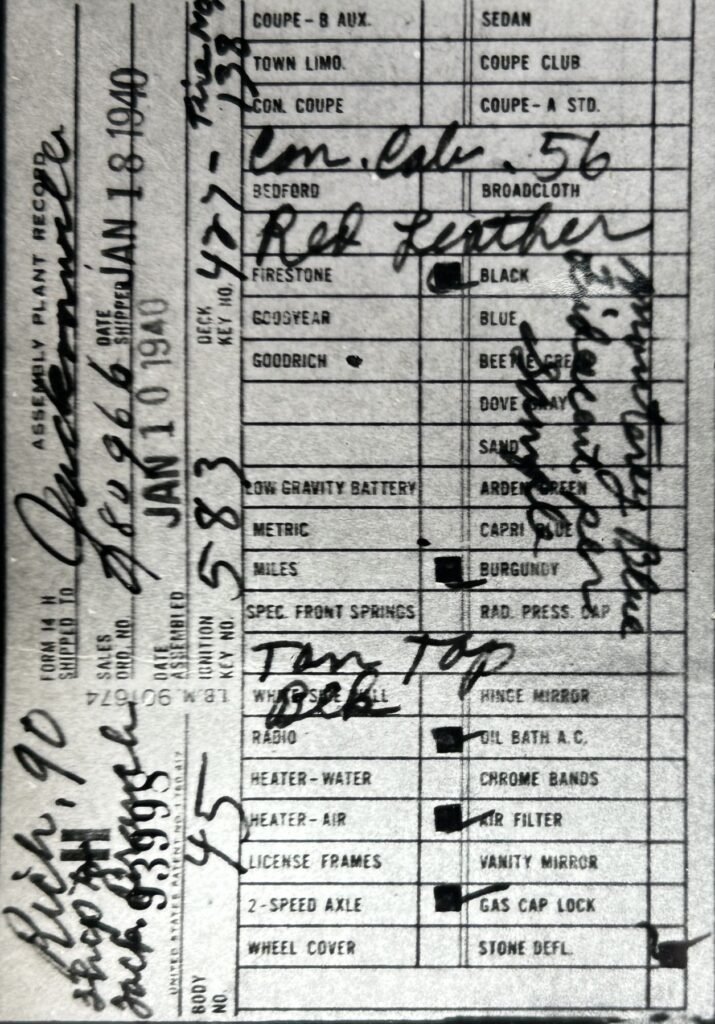 ASSEMBLY PLANT RECORD
FORM 14 H
SHIPPED TO Jacksonville
SALES ORD. NO. 280966
DATE SHIPPED JAN 18 1940
DATE ASSEMBLED JAN 10 1940
IGNITION KEY NO. 583
DECK KEY NO. 427 - Tire No
138
I.B.M. 901674
Rich. 90
Ship to
H
Jack. Branch
93995
UNITED STATES PATENT NO. 1,780,617
BODY NO. 45
COUPE-B AUX. SEDAN
TOWN LIMO. COUPE CLUB
CON. COUPE COUPE-A STD.
Con. Cab. 56
BEDFORD BROADCLOTH
Red Leather
FIRESTONE BLACK
GOODYEAR BLUE
GOODRICH BEETLE GREEN
DOVE GRAY
SAND
LOW GRAVITY BATTERY ARDEN GREEN
METRIC CAPRI BLUE
MILES BURGUNDY
SPEC. FRONT SPRINGS RAD. PRESS. CAP
Blue
per
Sample
Tan Top
WHITE SIDE WALL HINGE MIRROR
Blk
RADIO OIL BATH A.C.
HEATER-WATER CHROME BANDS
HEATER-AIR AIR FILTER
LICENSE FRAMES VANITY MIRROR
2-SPEED AXLE GAS CAP LOCK
WHEEL COVER STONE DEFL.